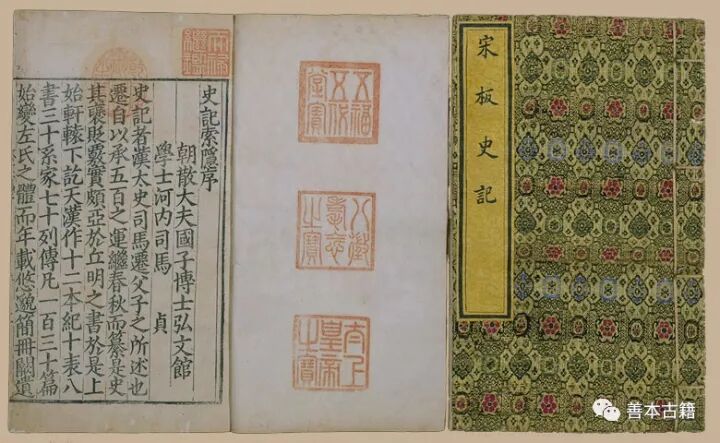 宋板史記
五福五代堂寶
八徵耄念之寶
太上皇帝之寶
天祿繼鑑
史記索隱序
朝散大夫國子博士弘文館
學士河内司馬 貞
史記者漢太史司馬遷父子之所述也
遷自以承五百之運繼春秋而纂是史
其襃貶覈實頗亞於丘明之書於是上
始軒轅下訖天漢作十二本紀十表八
書三十系家七十列傳凡一百三十篇
始變左氏之體而年載悠邈簡冊闕遺
善本古籍